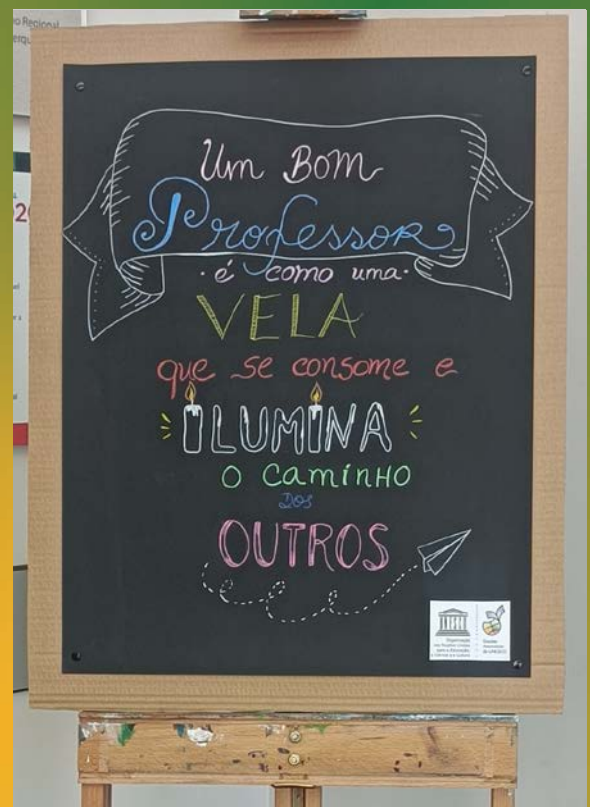 o Regional
Um Bom
Professor
é como uma
VELA
que se consome e
iLUMiNA
O CaminHO
DOS
OUTROS
Organização
das Nações Unidas
para a Educação,
a Ciência e a Cultura
Escolas
Associadas
da UNESCO